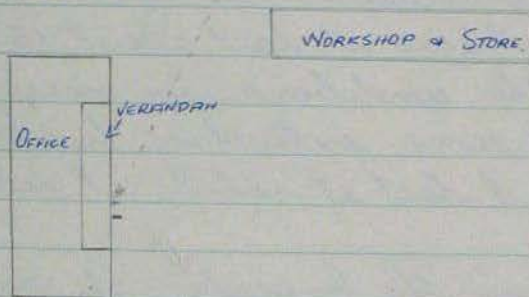 WORKSHOP & STORE.
VERANDAH
OFFICE